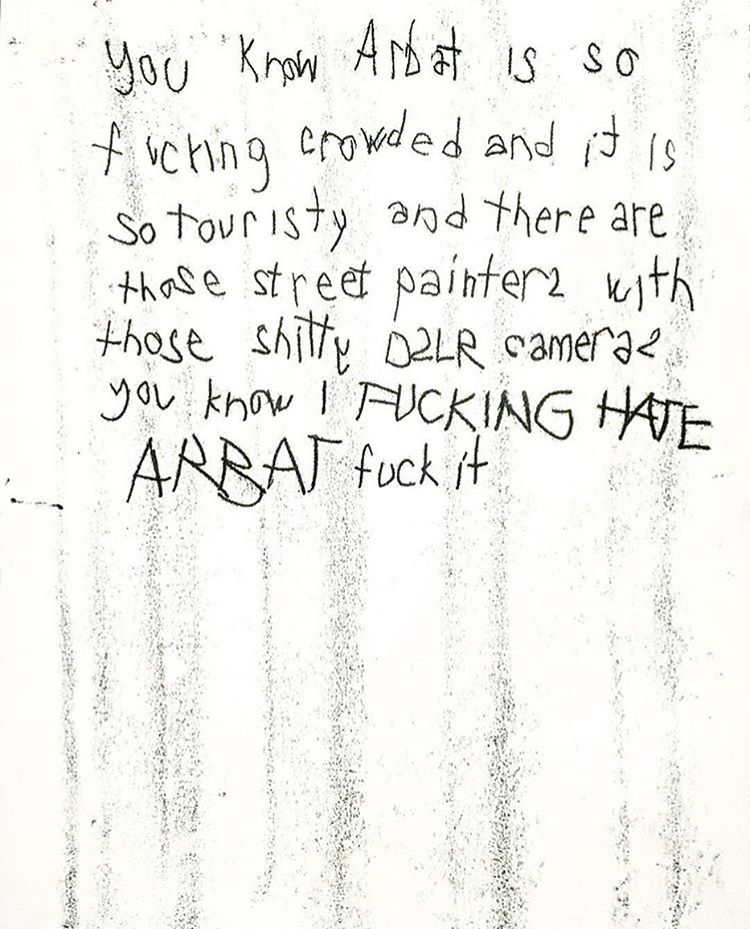 you know Arbat is so
fucking crowded and it is
so touristy and there are
those street painters with
those shitty DSLR cameras
you know I FUCKING HATE
ARBAT fuck it